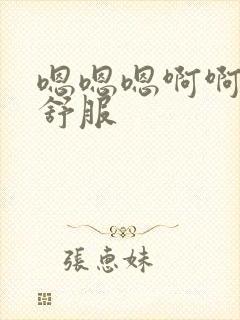 嗯嗯嗯啊啊
舒服
張惠妹